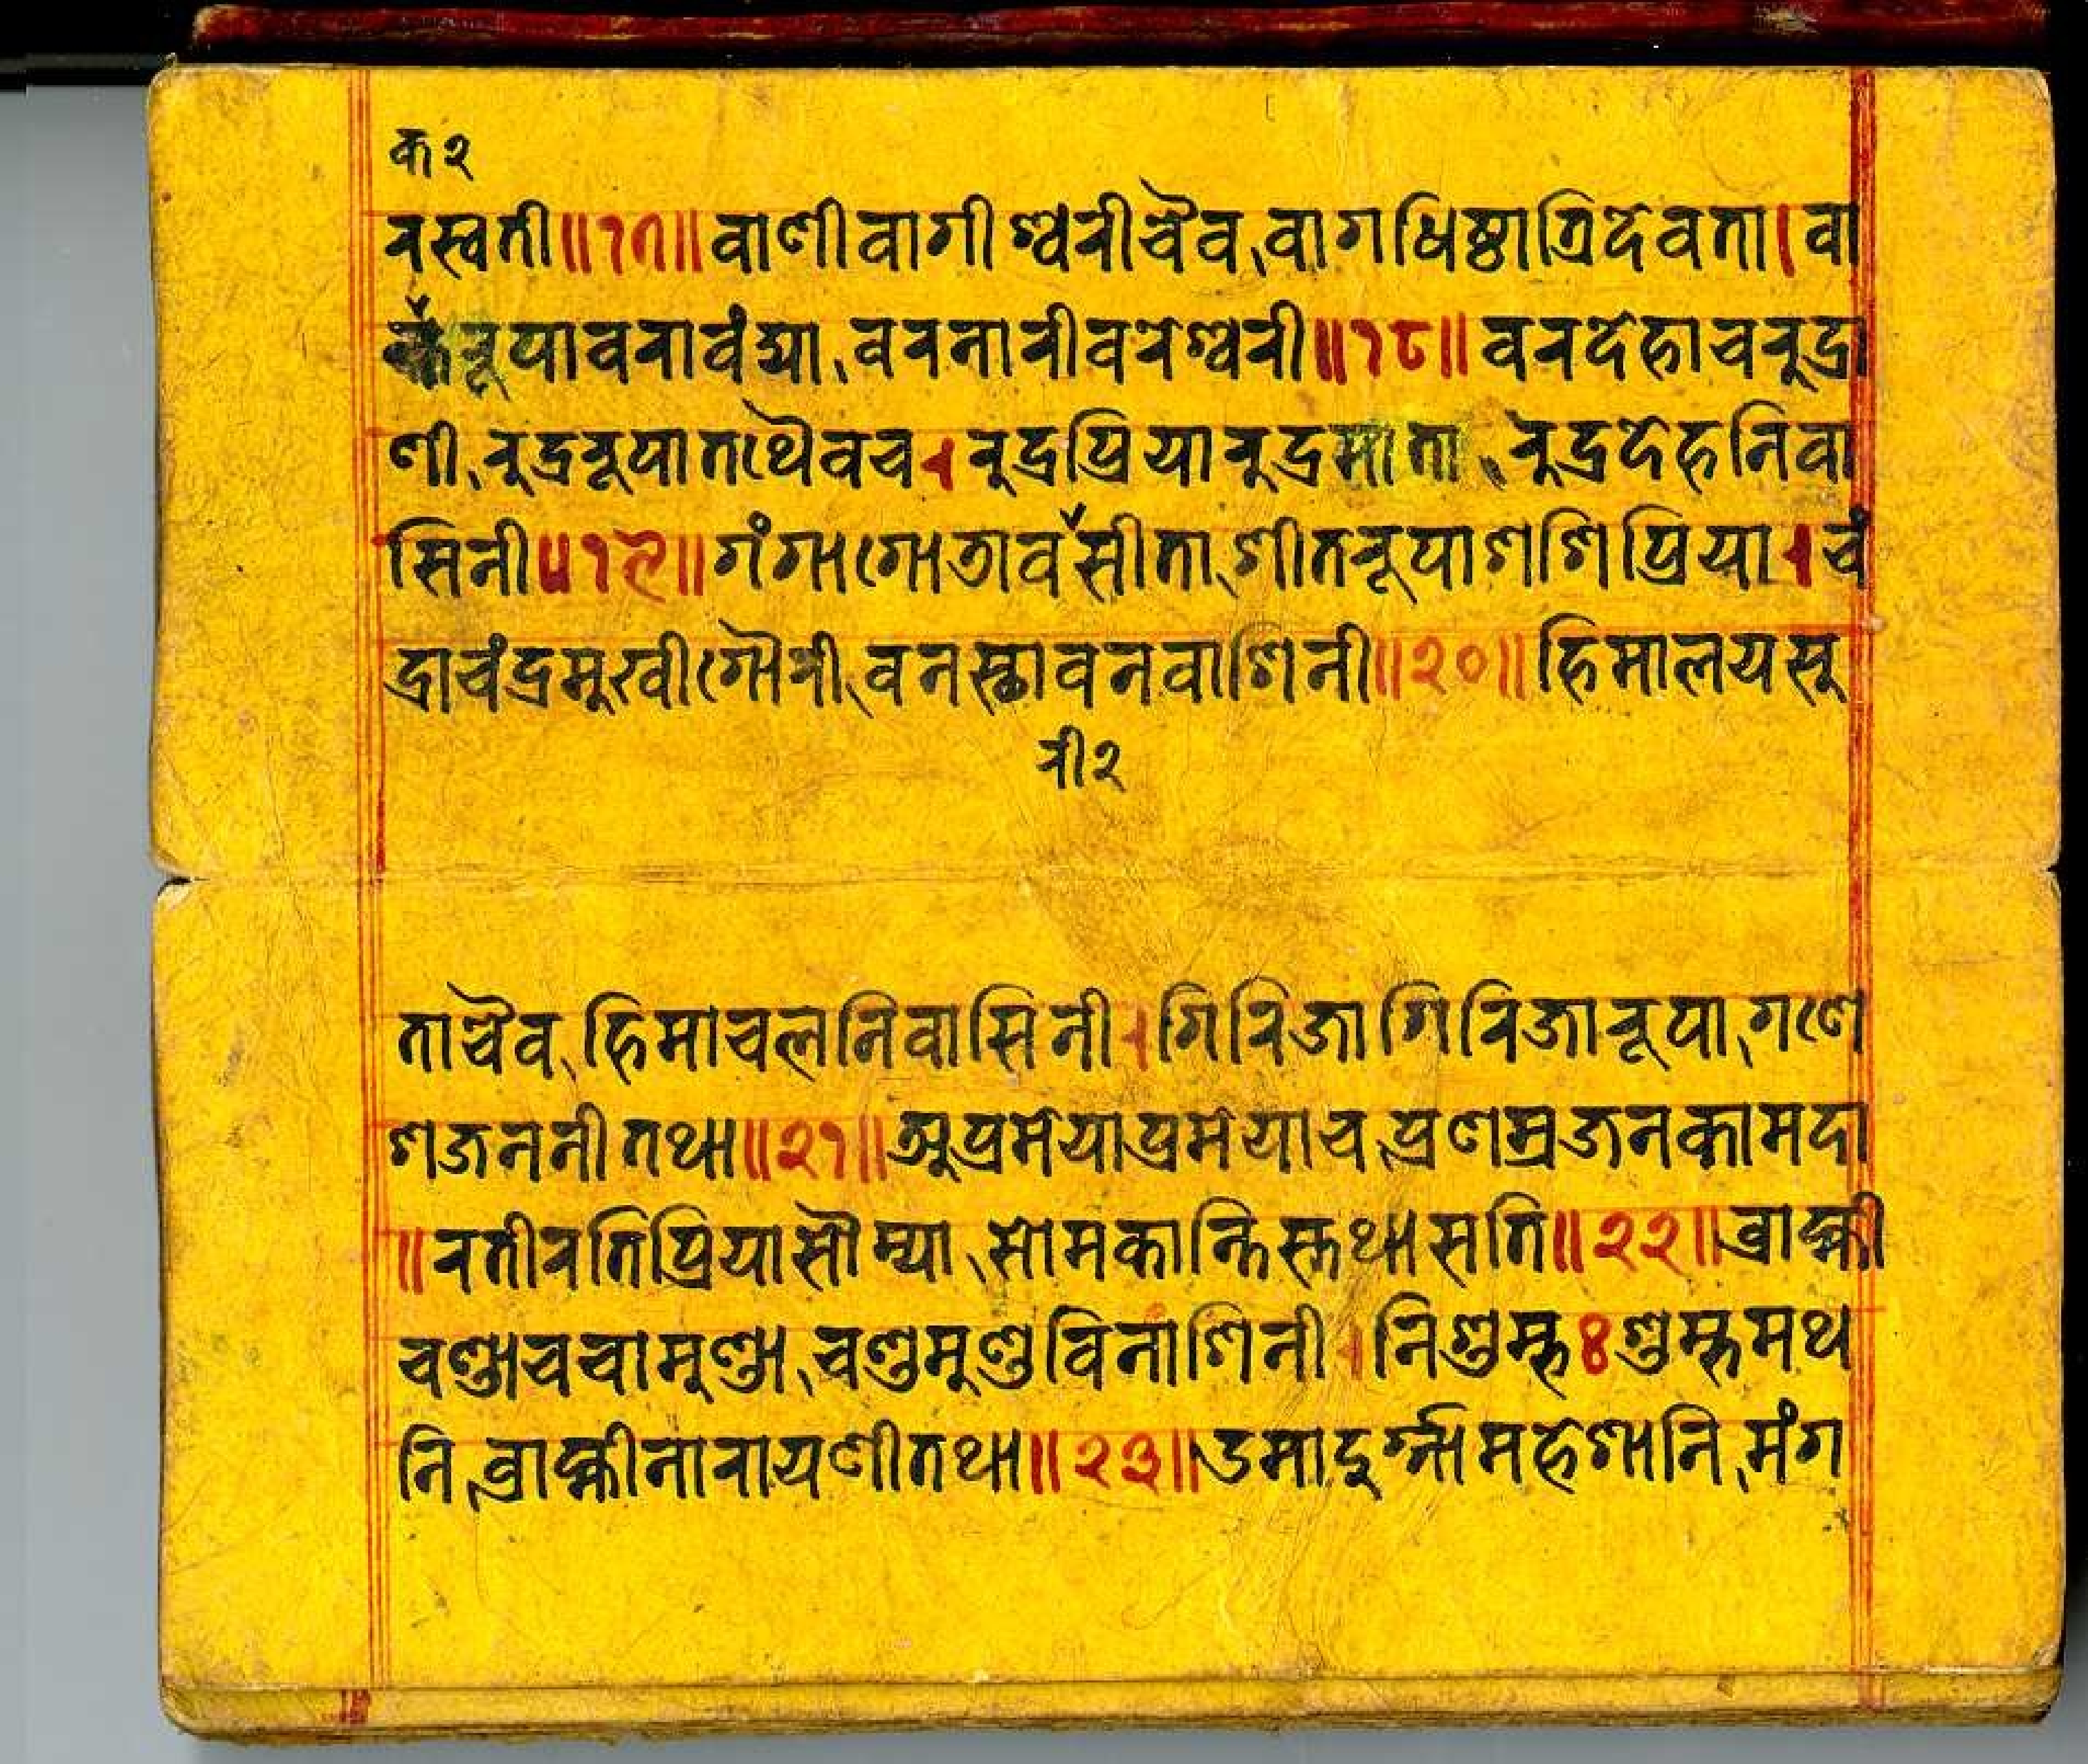 क२
रस्वती॥१७॥वाणीवागीश्वरीचैव,वागधिष्ठात्रिदेवता।वा
रूपावरावंद्या,वरनारीवरेश्वरी॥१८॥वरदेहाचरुद्रा
णी,रुद्ररूपातथैवच।रुद्रप्रियारुद्रमाता,रुद्रदेहनिवा
सिनी॥१९॥गंगागोतावसीता,शीतरूपाशशिप्रिया।चं
द्राचंद्रमुखीगौरी,वनस्छावनवाशिनी॥२०॥हिमालयसु
री२
ताचैव,हिमाचलनिवासिनी।गिरिजागिरिजारूपा,गणे
शजननीतथा॥२१॥अप्रमेयाप्रमेयाच,प्रणम्रजनकामदा
॥रतीरतिप्रियासौम्या,सोमकान्तिस्तथासति॥२२॥ब्राह्मी
चण्डाचचामुण्डा,चण्डमुण्डविनाशिनी।निशुम्भ४शुम्भमथ
नि,ब्राह्मीनारायणीतथा॥२३॥उमादुर्ग्गामहेशानि,मंग